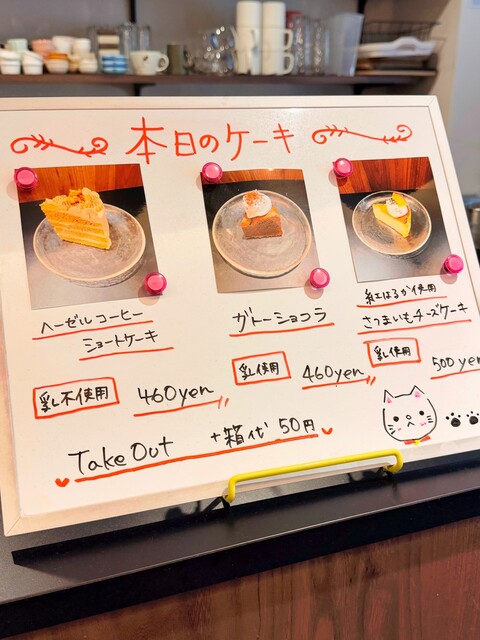 本日のケーキ
ヘーゼルコーヒー
ショートケーキ
乳不使用
460yen
ガトーショコラ
乳使用
460yen
紅はるか使用
さつまいもチーズケーキ
乳使用
500yen
Take Out +箱代 50円